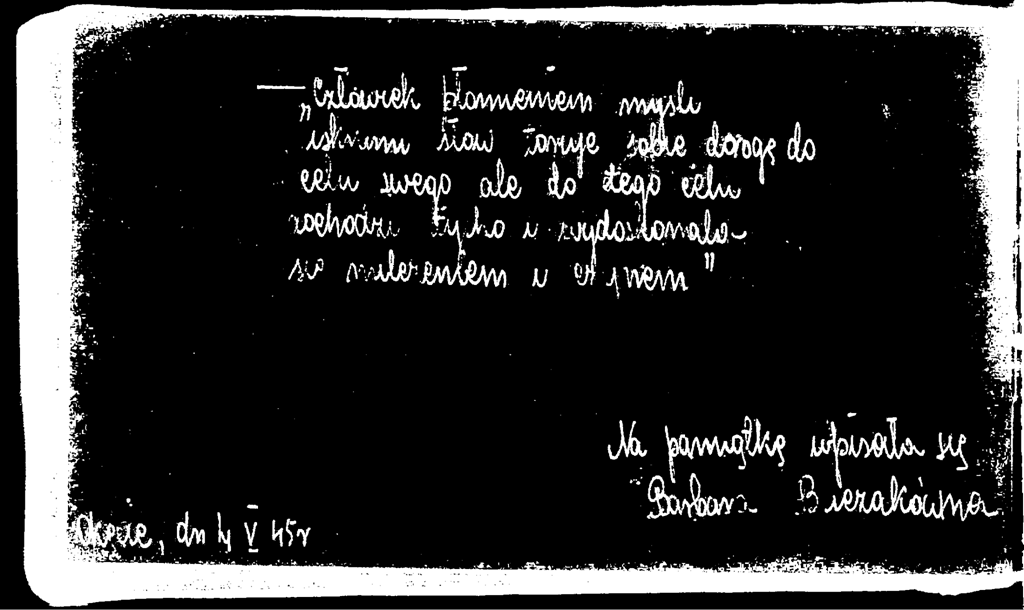 „Człowiek płomieniem myśli
iskrami słow toruje sobie drogę do
celu swego ale do tego celu
zachodzi tylko i wydoskonala
się milczeniem i czynem"
Na pamiątkę wpisała się
Barbara Biezakówna
Okęcie, dn 4 V 45r